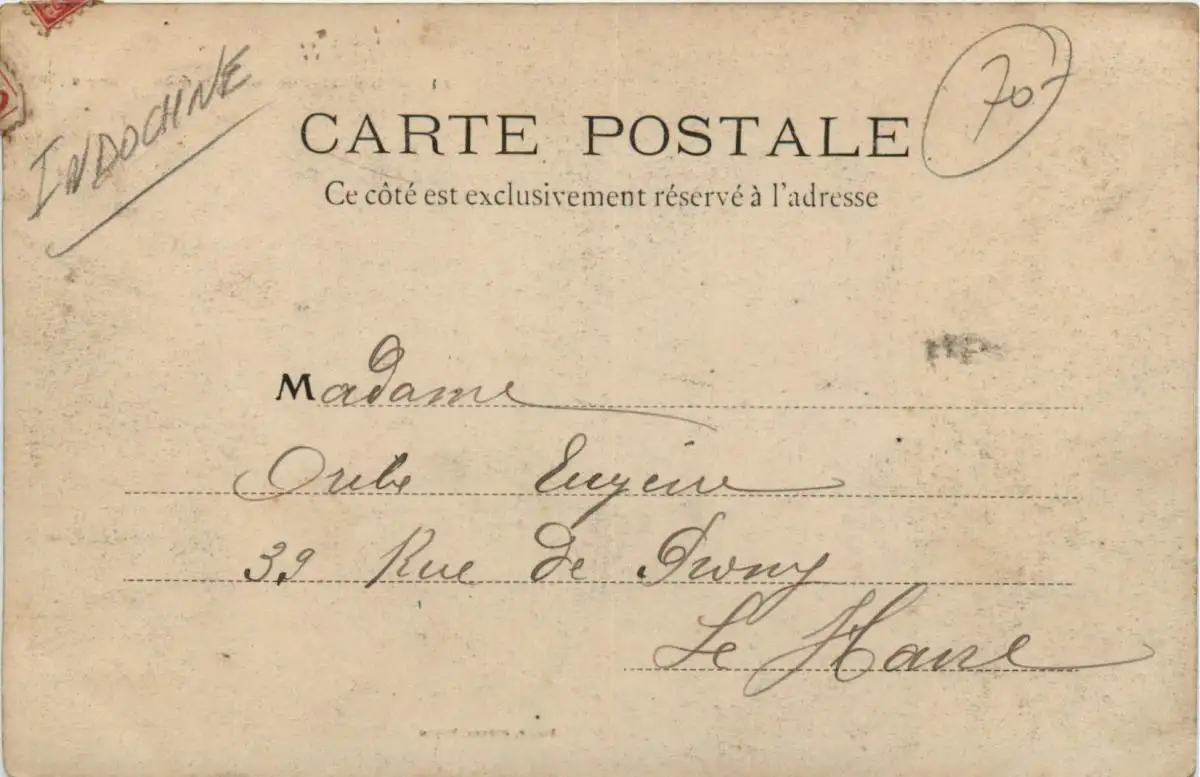 INDOCHINE
70
CARTE POSTALE
Ce côté est exclusivement réservé à l'adresse
Madame
Eugénie
39 Rue de
Le Havre